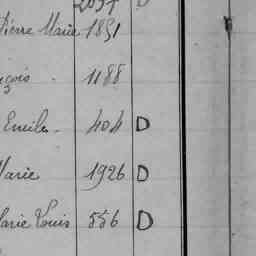 Pierre Marie 1851
çois 1188
Emile 404 D
Marie 1926 D
Marie Louis 556 D